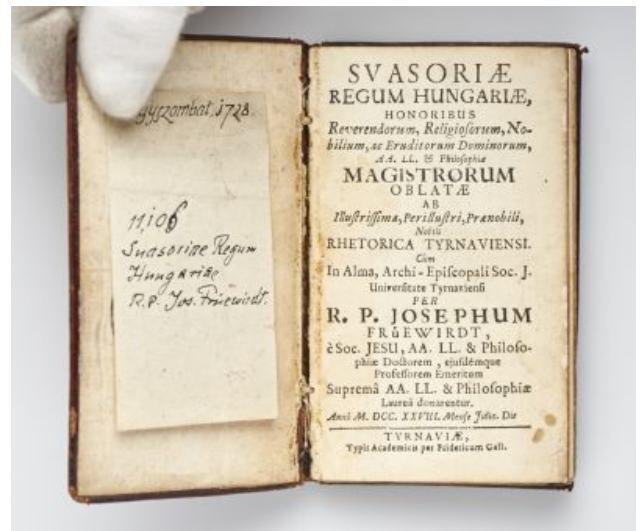 Nagyszombat, 1728.
11,106
Suasoriae Regum
Hungariae
R. P. Jos. Früewirdt.
SVASORIÆ
REGUM HUNGARIÆ,
HONORIBUS
Reverendorum, Religiosorum, No-
bilium, ac Eruditorum Dominorum,
AA. LL. & Philosophiæ
MAGISTRORUM
OBLATÆ
AB
Illustrissima, Perillustri, Prænobili,
Nobili
RHETORICA TYRNAVIENSI.
Cùm
In Alma, Archi-Episcopali Soc. J.
Universitate Tyrnaviensi
PER
R. P. JOSEPHUM
FRůEWIRDT,
è Soc. JESU, AA. LL. & Philoso-
phiæ Doctorem, ejusdémque
Professorem Emeritum
Supremâ AA. LL. & Philosophiæ
Laureâ donarentur.
Annô M. DCC. XXVIII. Mense Julio. Die
TYRNAVIÆ,
Typis Academicis per Fridericum Gall.